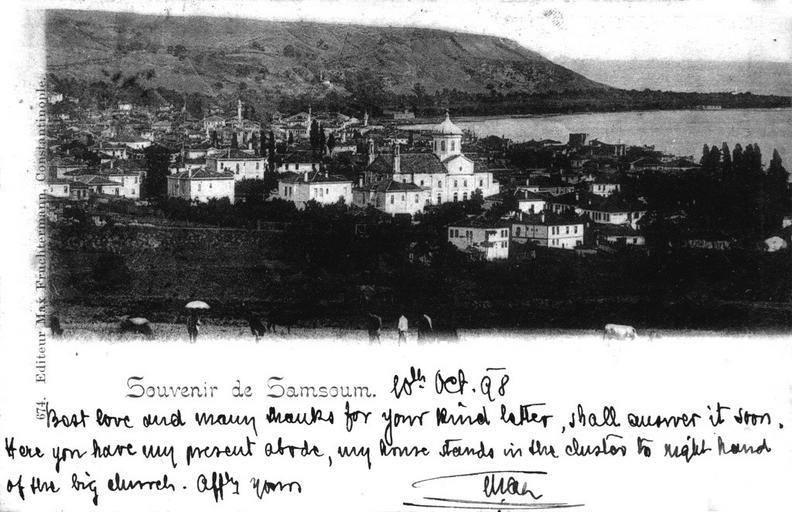 674. Editeur Max Fruchtermann, Constantinople.
Souvenir de Samsoum. 10th Oct. 98
Best love and many thanks for your kind letter, shall answer it soon.
Here you have my present abode, my house stands in the cluster to right hand
of the big church. Affly yours
Max